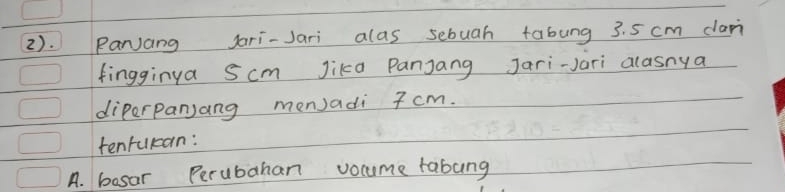 2). Panjang Jari-Jari alas sebuah tabung 3.5 cm dan
tingginya 5 cm Jika Panjang Jari-Jari alasnya
diperpanjang menjadi 7 cm.
tentukan:
A. besar Perubahan volume tabung